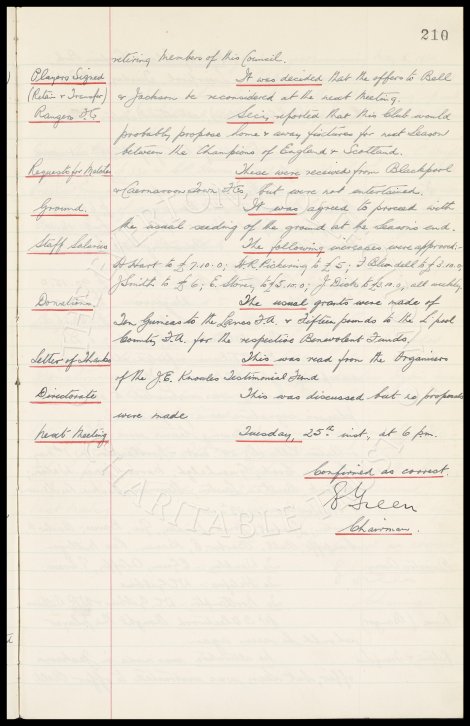 210
retiring members of this Council.
Players Signed It was decided that the offers to Bell
(Retain & Transfer) & Jackson be reconsidered at the next Meeting.
Rangers F.C. Secy. reported that this Club would
probably propose home & away fixtures for next Season
between the Champions of England & Scotland.
Requests for Matches These were received from Blackpool
& Caernarvon Town F.Cs, but were not entertained.
Ground. It was agreed to proceed with
the usual seeding of the ground at the Season's end.
Staff Salaries The following increases were approved:-
H Hart to £7.10.0; H.R. Pickering to £5; T. Blundell to £3.10.0;
J Smith to £6; E. Storey to £5.10.0; J. Dick to £5.10.0, all weekly
Donations The usual grants were made of
Ten Guineas to the Lancs F.A. & Fifteen pounds to the L'pool
County F.A. for the respective Benevolent Funds.
Letter of Thanks This was read from the Organisers
of the J.E. Knowles Testimonial Fund
Directorate This was discussed but no proposals
were made
Next Meeting Tuesday, 25th inst, at 6 pm.
Confirmed as correct
Green
Chairman.
CHARITABLE